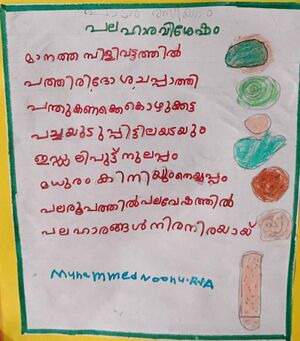 പലഹാരവിശേഷം
മാനത്തമ്പിളിവട്ടത്തിൽ
പത്തിരിദോശചപ്പാത്തി
പന്തുകണക്കെകൊഴുക്കട്ട
പച്ചയുടുപ്പിട്ടിലയടയും
ഇഡ്ഡലിപുട്ട് നൂലപ്പം
മധുരം കിനിയുംനെയ്യപ്പം
പലരൂപത്തിൽ പലവേഷത്തിൽ
പലഹാരങ്ങൾ നിരനിരയായ്
Muhammed noohu.R.A